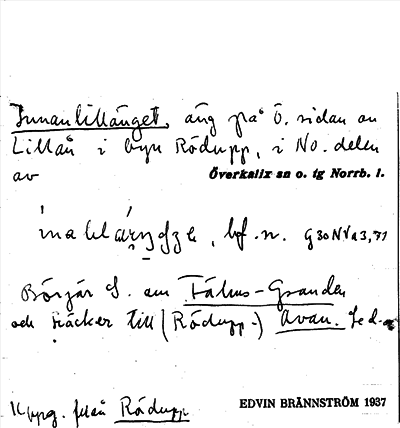 Innanlillänget, äng på Ö. sidan av
Lillån i byn Rödupp, i No. delen
av Överkalix sn o. tg Norrb. l.
bf. n.
Börjar S. om Fähus-Granden
och räcker till (Rödupp-) Avan.
Uppg. från Rödupp
EDVIN BRÄNNSTRÖM 1937